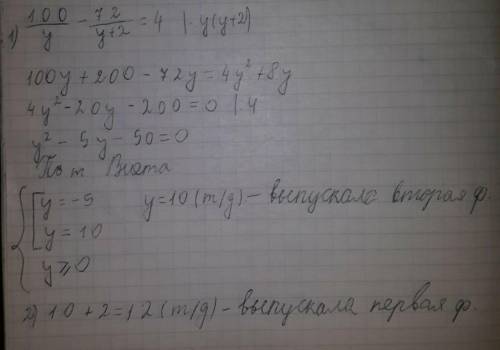 1) 100/y - 72/(y+2) = 4 | · y(y+2)
100y + 200 - 72y = 4y² + 8y
4y² - 20y - 200 = 0 | 4
y² - 5y - 50 = 0
По т Виета
y = -5 y = 10 (т/д) - выпускала вторая ф.
y = 10
y ⩾ 0
2) 10 + 2 = 12 (т/д) - выпускала первая ф.